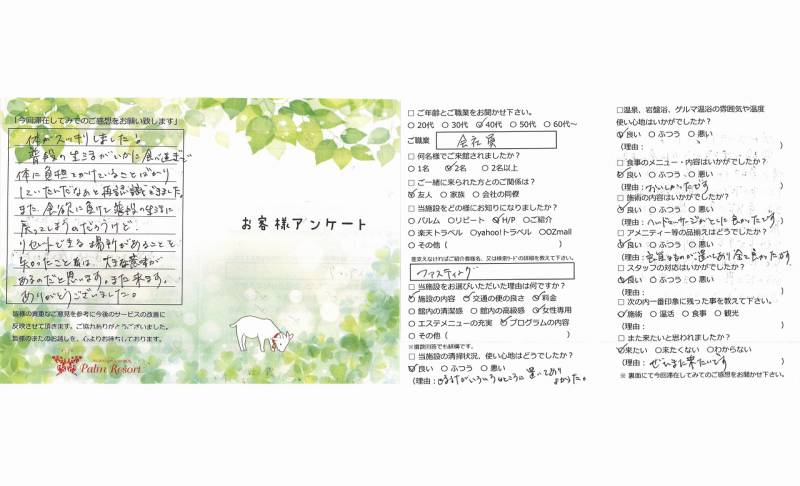 「今回滞在してみてのご感想をお願い致します」
体がスッキリしました!
普段の生活がいかに食べ過ぎで
体に負担をかけていることばかり
していたんだなぁと再認識できました。
また、食欲に負けて普段の生活に
戻ってしまうのだろうけど、
リセットできる場所があることを
知れたことは、大きな意味が
あるのだと思います。また来ます。
ありがとうございました。
皆様の貴重なご意見を参考に今後のサービスの改善に
反映させて頂きます。ご協力ありがとうございました。
皆様のまたのお越しを、心よりお待ちしております。
Palm Resort
お客様アンケート
□ ご年齢とご職業をお聞かせ下さい。
○ 20代 ○ 30代 ○ 40代 ○ 50代 ○ 60代～
ご職業 会社員
□ 何名様でご来館されましたか?
○ 1名 ○ 2名 ○ 2名以上
□ ご一緒に来られた方とのご関係は?
○ 友人 ○ 家族 ○ 会社の同僚
□ 当施設をどの様にお知りになりましたか?
○ パルム ○ リピート ○ H/P ○ ご紹介
○ 楽天トラベル ○yahoo!トラベル ○OZmall
○ その他 ( )
差支えなければご紹介者様名、又は検索ワードの詳細を教えて下さい。
ファスティング
□ 当施設をお選びいただいた理由は何ですか?
○ 施設の内容 ○ 交通の便の良さ ○ 料金
○ 館内の清潔感 ○ 館内の高級感 ○ 女性専用
○ エステメニューの充実 ○ プログラムの内容
○ その他 ( )
※複数回答でも結構です。
□ 当施設の清掃状況、使い心地はどうでしたか?
○ 良い ○ ふつう ○ 悪い
(理由: いろいろなところに置いてあり よかった。
□温泉、岩盤浴、ゲルマ温浴の雰囲気や温度
使い心地はいかがでしたか?
○ 良い ○ ふつう ○ 悪い
(理由: )
□ 食事のメニュー・内容はいかがでしたか?
○ 良い ○ ふつう ○ 悪い
(理由: おいしかったです )
□ 施術の内容はいかがでしたか?
○ 良い ○ ふつう ○ 悪い
(理由: ハンドマッサージがとても良かったです。)
□ アメニティー等の品揃えはどうでしたか?
○ 良い ○ ふつう ○ 悪い
(理由: 必要なものが置いてあり 良かったです
□ スタッフの対応はいかがでしたか?
○ 良い ○ ふつう ○ 悪い
(理由: )
□ 次の内一番印象に残った事を教えて下さい。
○ 施術 ○ 温活 ○ 食事 ○ 観光
(理由: )
□ また来たいと思われましたか?
○来たい ○来たくない ○わからない
(理由: ぜひまた来たいです )
※ 裏面にて今回滞在してみてのご感想をお聞かせ下さい。